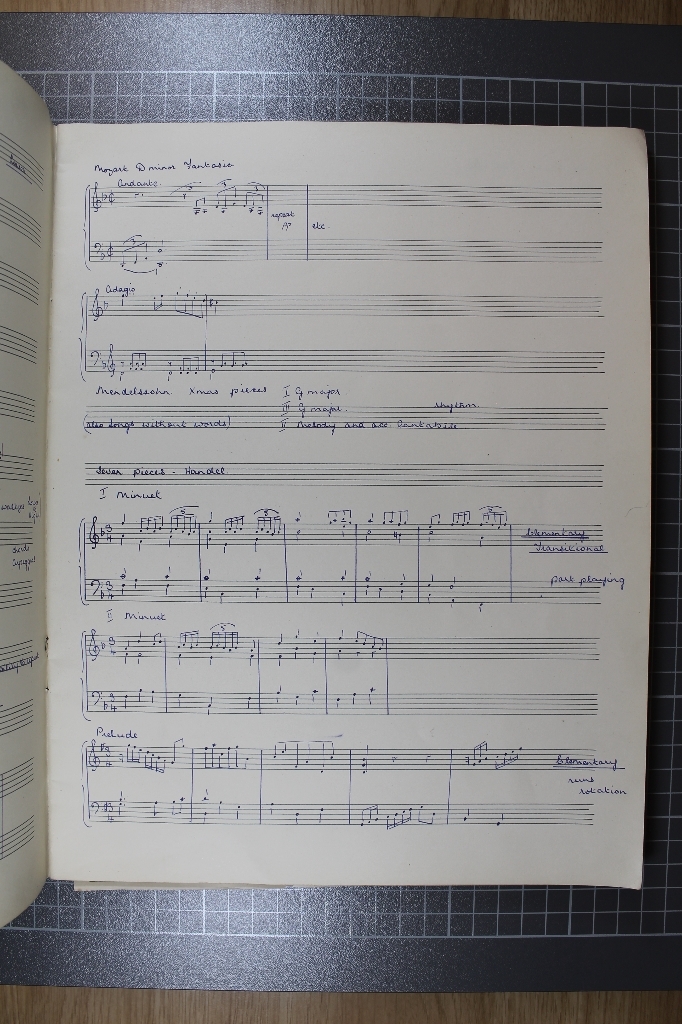 Mozart D minor Fantasie
Andante.
3
3
3
3
repeat
etc.
Adagio
Mendelssohn Xmas pieces I G major
III G major. rhythm
(also songs without words) II Melody and acc. Cantabile
Seven pieces - Handel.
I Minuet
3
4
3
3
3
Elementary
Transitional
part playing
3
4
II Minuet
3
4
3
3
4
Prelude
3
4
Elementary
runs
rotation
3
4